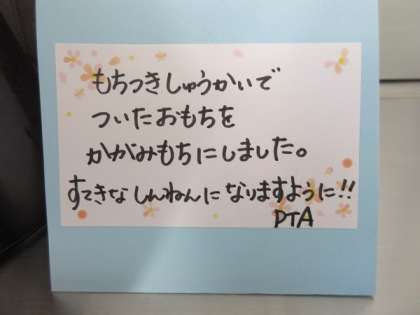 もちつきしゅうかいで
ついたおもちを
かがみもちにしました。
すてきなしんねんになりますように!!
PTA